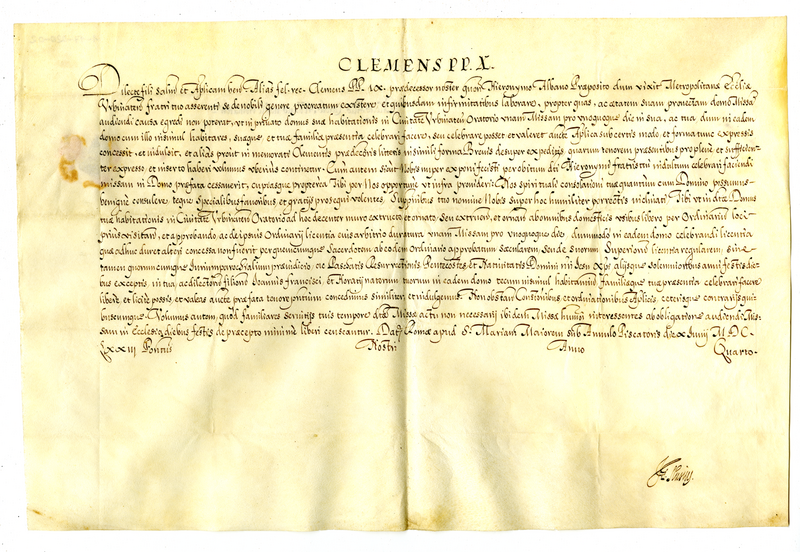 CLEMENS PP. X.
Dilecte fili salutem et Aplicam ben. Alias fel. rec. Clemens PP. IX. prædecessor noster quon. Hieronymo Albano Præposito dum vixit Metropolitanæ Eccliæ
Urbinaten fratri tuo asserenti se de nobili genere procreatum existere et quibusdam infirmitatibus laborare, propter quas, ac ætatem suam provectam domo Missæ
audiendi causa egredi non poterat, ut in privato domus suæ habitationis in Civitate Urbinaten Oratorio unam Missam pro unoquoque die in sua, ac tua dum in eadem
domo cum illo insimul habitares, suaque et tuæ familiæ præsentia celebrari facere, seu celebrare posset et valeret auctte Aplica sub certis modo et forma tunc expressis
concessit, et indulsit, et alias prout in memorati Clementis prædecessoris litteris in simili forma Brevis desuper expeditis quarum tenorem præsentibus pro plene et sufficien-
ter expresso et inserto haberi volumus uberius continetur. Cum autem sicut Nobis nuper exponi fecisti per obitum dicti Hieronymi fratris tui indultum celebrari faciendi
missam in Domo præfata cessaverit, cupiasque propterea Tibi per Nos opportune ut infra provideri: Nos spirituali consolationi tuæ quantum cum Domino possumus
benigne consulere, teque specialibus favoribus et gratiis prosequi volentes Supplicibus tuo nomine Nobis super hoc humiliter porrectis inclinati Tibi ut in dictæ Domus
tuæ habitationis in Civitate Urbinaten Oratorio ad hoc decenter muro extructo et ornato, seu extruen, et ornan ab omnibus domesticis usibus libero per Ordinarium loci
prius visitan, et approbando, ac de ipsius Ordinarii licentia eius arbitrio duratura unam Missam pro unoquoque die dummodo in eadem domo celebrandi licentia
quæ adhuc duret alteri concessa non fuerit per quemcumque Sacerdotem ab eodem Ordinario approbatum Sæcularem, seu de suorum Superiorum licentia regularem, sine
tamen quorumcumque Iurium parochialium præiudicio, ac Paschatis Resurrectionis Pentecostes, et Nativitatis Domini nri Iesu Xpi aliisque solemnioribus anni festis die-
bus exceptis, in tua, ac dilectorum filiorum Ioannis Francisci et Horatij natorum tuorum in eadem domo tecum insimul habitantium familiæque tuæ præsentia celebrari facere
libere et licite possis et valeas auctte præfata tenore pntium concedimus similiter et indulgemus. Non obstan Constitonibus et ordinationibus Aplicis, ceterisque contrariis qui-
buscumque. Volumus autem, quod familiares servitiis tuis tempore dictæ Missæ actu non necessarii ibidem Missæ hmoi interessentes ab obligatione audiendi Mis-
sam in Ecclesia diebus festis de præcepto minime liberi censeantur. Dat. Romæ apud S. Mariam Maiorem sub Annulo Piscatoris die X Iunij M. DC.
LXXIII Pontus Nostri Anno Quarto.